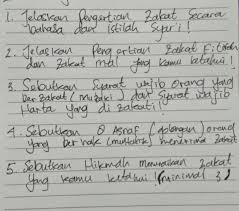 1. Jelaskan Pengertian Zakat Secara
bahasa dan istilah Syar'i !
2. Jelaskan Pengertian Zakat Fitrah
dan Zakat Mal yang kamu ketahui !
3. Sebutkan Syarat wajib orang yang
berzakat (Muzaki) dan Syarat wajib
Harta yang di zakati !
4. Sebutkan 8 Asnaf (golongan) orang
yang berhak (mustahik) menerima zakat
5. Sebutkan Hikmah menunaikan zakat
yang kamu ketahui (minimal 3)